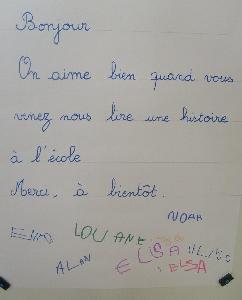 Bonjour
On aime bien quand vous
venez nous lire une histoire
à l'école
Merci, à bientôt.
NOAH
LOUANE
ALAN ELISA
ELSA